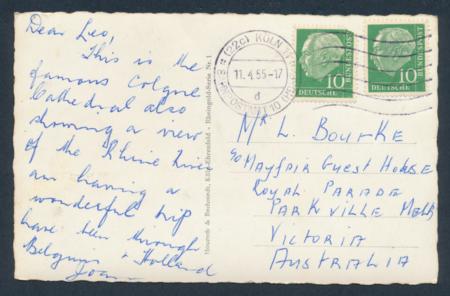 Dear Leo,
This is the
famous Cologne
Cathedral also
showing a view
of the Rhine River
am having a
wonderful trip
have been through
Belgium & Holland
Joan
(22c) KÖLN
11.4.55-17
d
10
DEUTSCHE BUNDESPOST
10
DEUTSCHE BUNDESPOST
Köln-Ehrenfeld - Rheingold-Serie Nr. 1
Mr L. BOURKE
c/o MAYFAIR GUEST HOUSE
ROYAL PARADE
PARKVILLE MELB
VICTORIA
AUSTRALIA